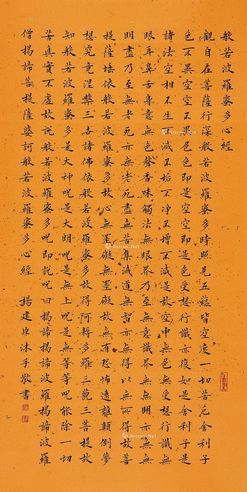 般若波羅蜜多心經
觀自在菩薩行深般若波羅蜜多時照見五蘊皆空度一切苦厄舍利子
色不異空空不異色色即是空空即是色受想行識亦復如是舍利子是
諸法空相不生不滅不垢不淨不增不減是故空中無色無受想行識無
眼耳鼻舌身意無色聲香味觸法無眼界乃至無意識界無無明亦無無
明盡乃至無老死亦無老死盡無苦集滅道無智亦無得以無所得故菩
提薩埵依般若波羅蜜多故心無罣礙無罣礙故無有恐怖遠離顛倒夢
想究竟涅槃三世諸佛依般若波羅蜜多故得阿耨多羅三藐三菩提故
知般若波羅蜜多是大神咒是大明咒是無上咒是無等等咒能除一切
苦真實不虛故說般若波羅蜜多咒即說咒曰揭諦揭諦波羅揭諦波羅
僧揭諦菩提薩婆訶般若波羅蜜多心經 楊建臣沐手敬書